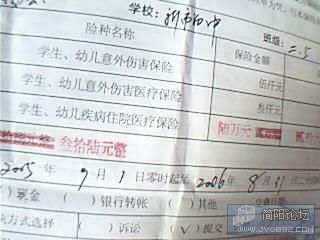 学校: 新市初中
班级: 二.5
险种名称
保险金额
学生、幼儿意外伤害保险
伍仟元
学生、幼儿意外伤害医疗保险
叁仟元
学生、幼儿疾病住院医疗保险
陆万元
叁拾陆元整
2005 年 9 月 1 日零时起至 2006 年 8 月 31 日二
交费日期
( ) 现金 ( ) 银行转帐 ( ) 其他
方式选择 ( ) 诉讼 (√) 提交
简阳论坛
WWW.JY0832.COM